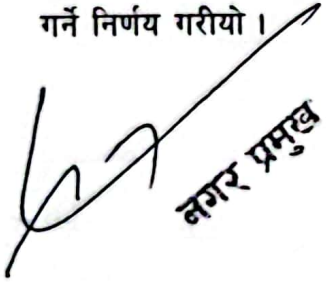 गर्ने निर्णय गरीयो ।
नगर प्रमुख